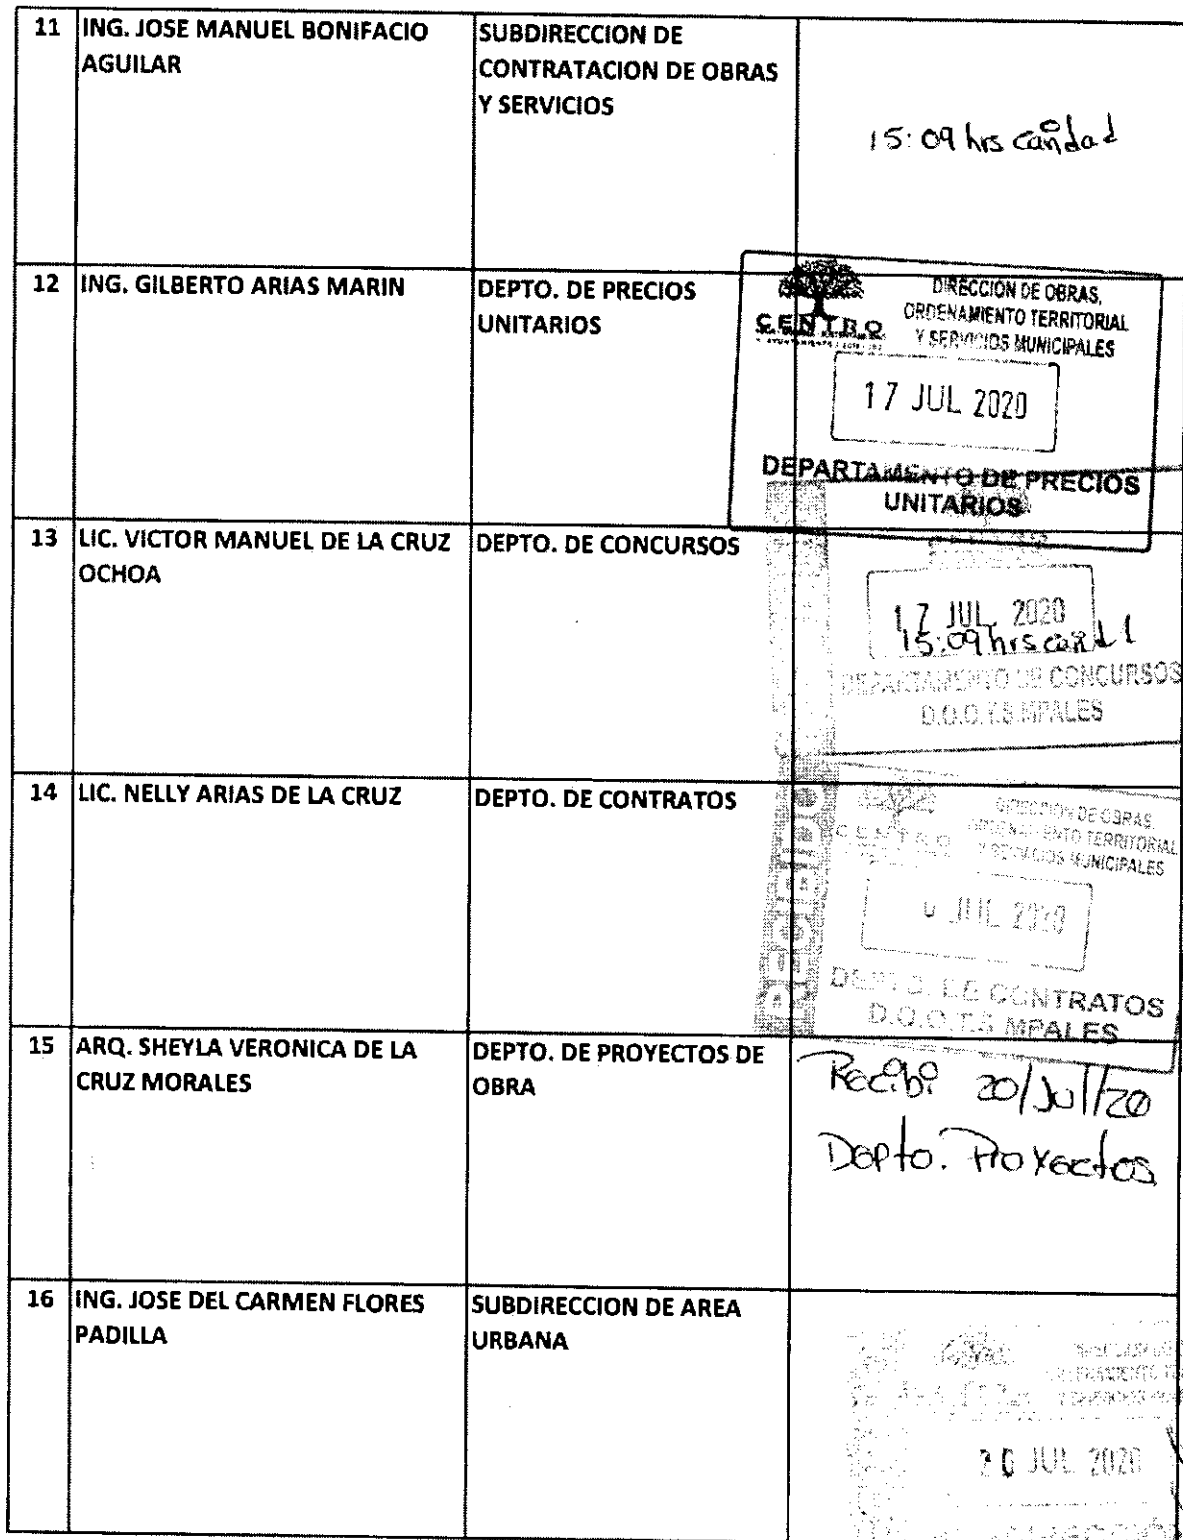 11 ING. JOSE MANUEL BONIFACIO AGUILAR
SUBDIRECCION DE CONTRATACION DE OBRAS Y SERVICIOS
15:09 hrs
12 ING. GILBERTO ARIAS MARIN
DEPTO. DE PRECIOS UNITARIOS
CENTRO
DIRECCION DE OBRAS,
ORDENAMIENTO TERRITORIAL
Y SERVICIOS MUNICIPALES
17 JUL 2020
DEPARTAMENTO DE PRECIOS
UNITARIOS
13 LIC. VICTOR MANUEL DE LA CRUZ OCHOA
DEPTO. DE CONCURSOS
17 JUL. 2020
15:09 hrs
DEPARTAMENTO DE CONCURSOS
D.O.O.T.S.MPALES
14 LIC. NELLY ARIAS DE LA CRUZ
DEPTO. DE CONTRATOS
RECIBIDO
CENTRO
DIRECCION DE OBRAS,
ORDENAMIENTO TERRITORIAL
Y SERVICIOS MUNICIPALES
JUL 2020
DEPTO. DE CONTRATOS
D.O.O.T.S MPALES
15 ARQ. SHEYLA VERONICA DE LA CRUZ MORALES
DEPTO. DE PROYECTOS DE OBRA
Recibi 20/Jul/20
Depto. Proyectos
16 ING. JOSE DEL CARMEN FLORES PADILLA
SUBDIRECCION DE AREA URBANA
20 JUL 2020